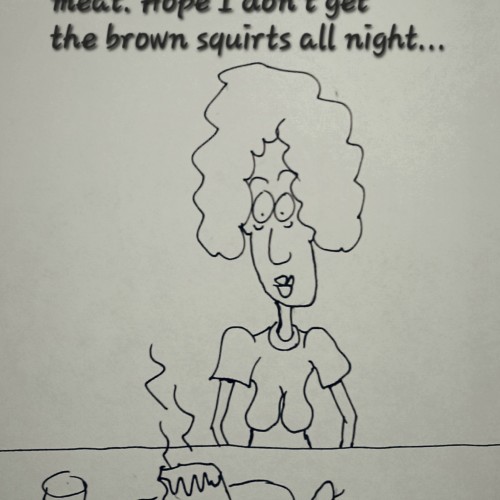 meat. Hope I don't get
the brown squirts all night...